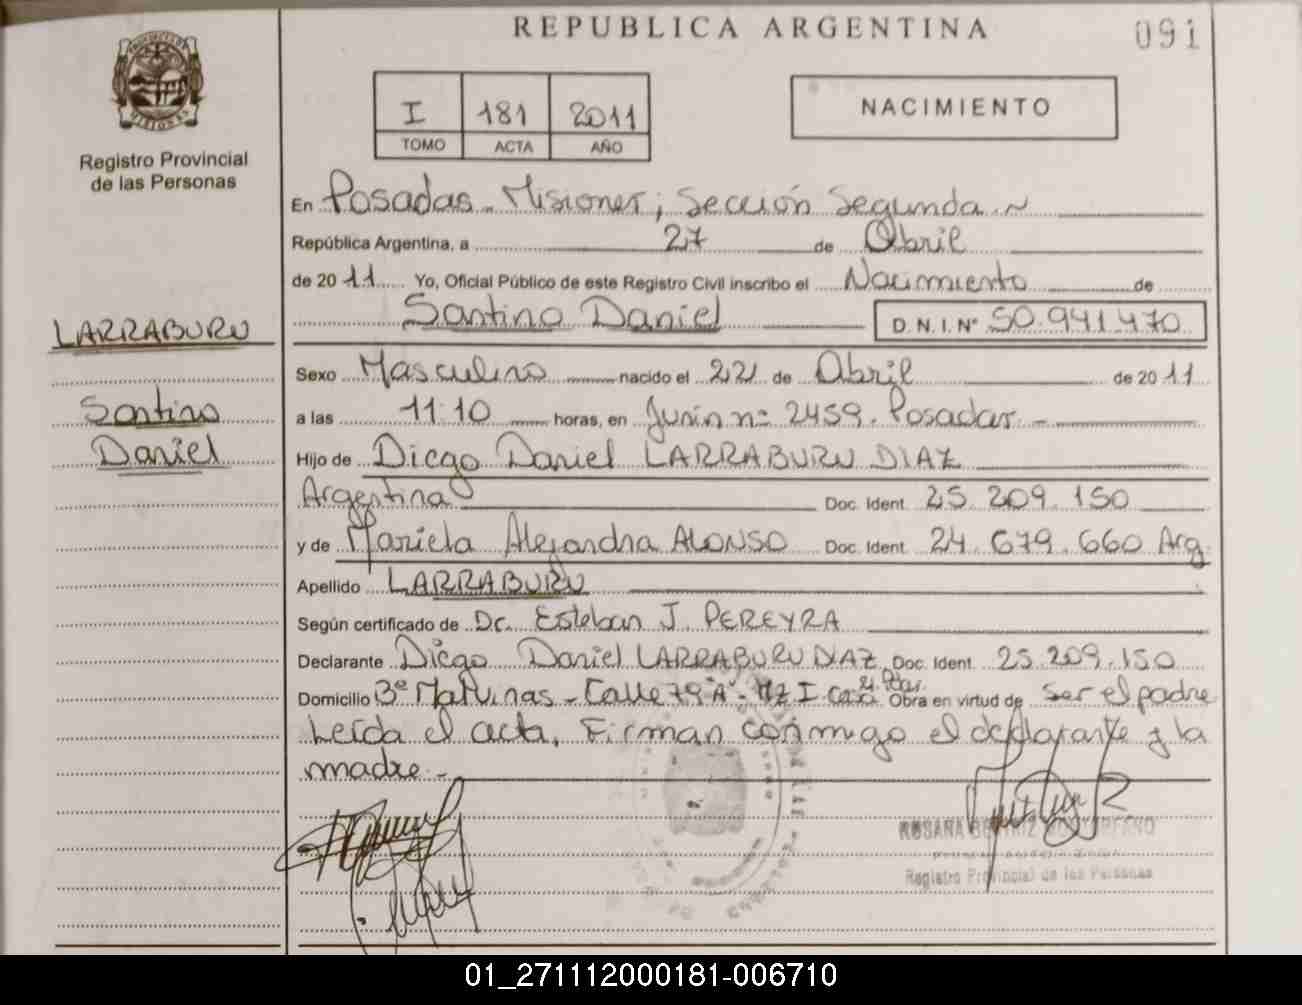 REPUBLICA ARGENTINA
091
PROVINCIA DE
MISIONES
Registro Provincial
de las Personas
I 181 2011
TOMO ACTA AÑO
NACIMIENTO
En Posadas - Misiones; Sección Segunda ~
República Argentina, a 27 de Abril
de 2011 Yo, Oficial Público de este Registro Civil inscribo el Nacimiento de
Santino Daniel D.N.I. Nº 50.941.470
LARRABURU
Santino
Daniel
Sexo Masculino nacido el 22 de Abril de 2011
a las 11:10 horas, en Junin nº 2459. Posadas -
Hijo de Diego Daniel LARRABURU DIAZ
Argentina Doc. Ident. 25.209.150
y de Mariela Alejandra ALONSO Doc. Ident. 24.679.660 Arg.
Apellido LARRABURU
Según certificado de Dr. Esteban J. PEREYRA
Declarante Diego Daniel LARRABURU DIAZ Doc. Ident. 25.209.150
Domicilio 3º Malvinas - Calle 79 "A" - Mz I casa 21 Pdas. Obra en virtud de ser el padre
Leída el acta, Firman conmigo el declarante y la
madre -
ROSANA BEATRIZ
Registro Provincial de las Personas
01_271112000181-006710